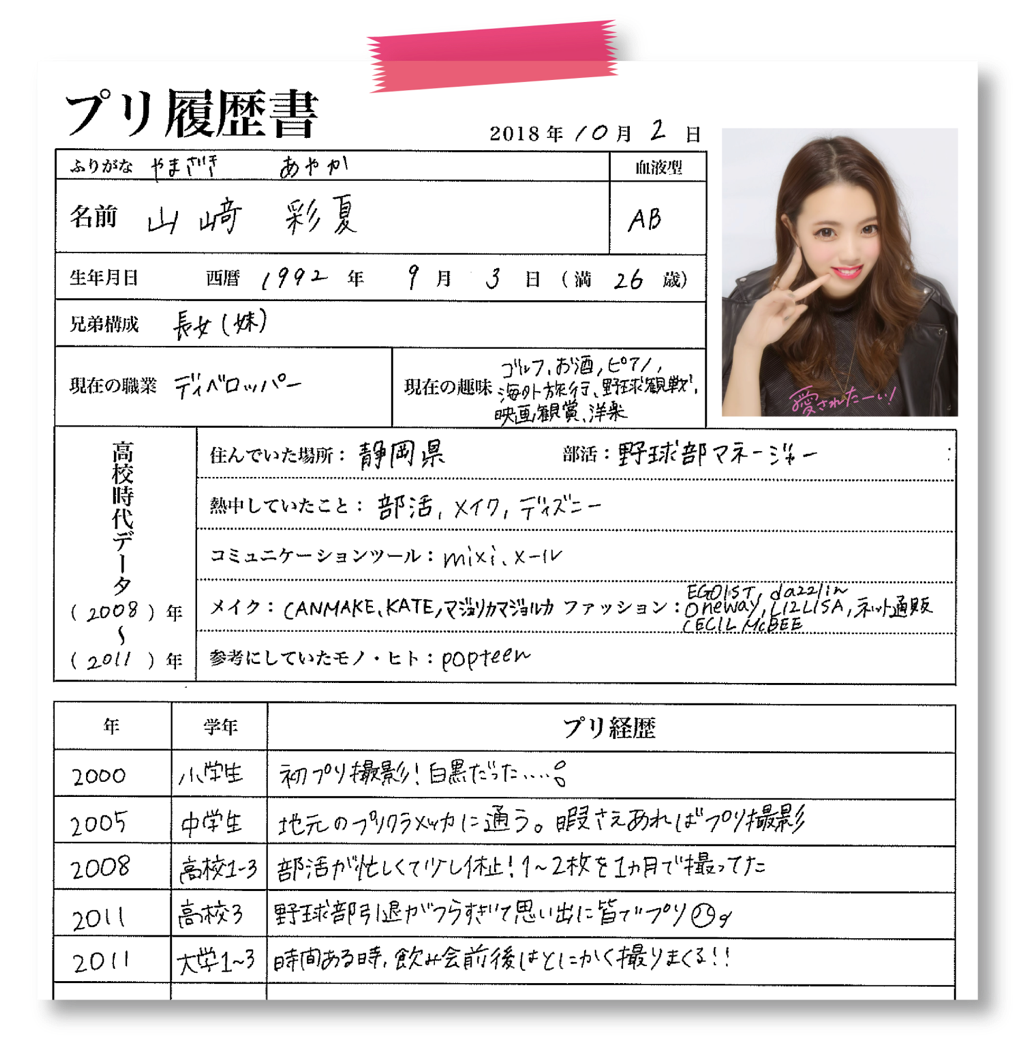 プリ履歴書
2018年10月2日
ふりがな やまざき あやか 血液型
名前 山﨑 彩夏 AB
生年月日 西暦 1992 年 9 月 3 日 (満 26 歳)
兄弟構成 長女(妹)
現在の職業 ディベロッパー
現在の趣味 ゴルフ,お酒,ピアノ,
海外旅行、野球観戦,
映画観賞、洋楽
愛されたーい!
高校時代データ
(2008)年
〜
(2011)年
住んでいた場所:静岡県 部活:野球部マネージャー
熱中していたこと:部活,メイク,ディズニー
コミュニケーションツール:mixi、メール
メイク:CANMAKE、KATE,マジョリカマジョルカ
ファッション:EGOIST, dazzlin
oneway,LIZLISA,ネット通販
CECIL McBEE
参考にしていたモノ・ヒト:popteen
年 学年 プリ経歴
2000 小学生 初プリ撮影!白黒だった....
2005 中学生 地元のプリクラメッカに通う。暇さえあればプリ撮影
2008 高校1~3 部活が忙しくて少し休止!1~2枚を1ヵ月で撮ってた
2011 高校3 野球部引退がつらすぎて思い出に皆でプリ
2011 大学1~3 時間ある時,飲み会前後はとにかく撮りまくる!!